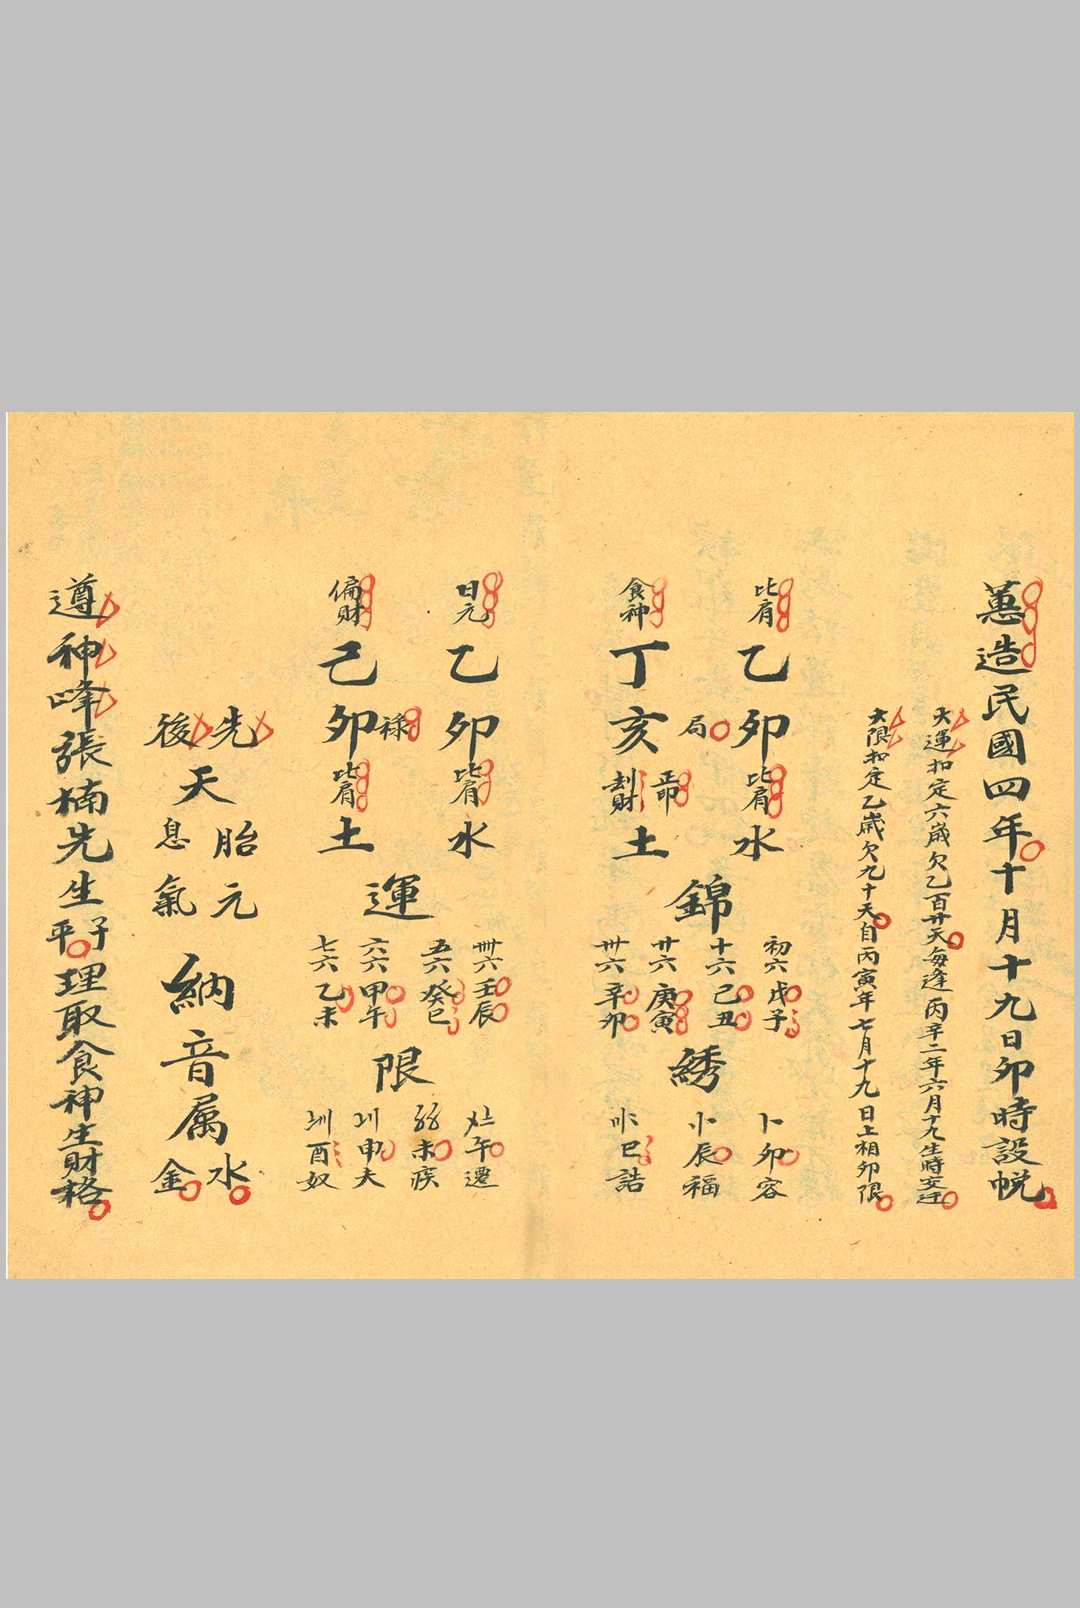 蕙造民國四年十月十九日卯時設帨
大運扣定六歲欠乙百廿天每逢丙辛二年六月十九生時交迁
大限扣定乙歲欠九十天自丙寅年七月十九日上相卯限
比肩
乙卯
比肩
水
局
食神
丁亥
正印
刦財
土
錦
初六戊子
十六己丑
廿六庚寅
卅六辛卯
綉
卯容
辰福
巳誥
日元
乙卯
比肩
水
祿
偏財
己卯
比肩
土
運
卌六壬辰
五六癸巳
六六甲午
七六乙未
限
午遷
未疾
申夫
酉奴
先
後
天
胎元
息氣
納音属
水
金
遵神峰張楠先生子平理取食神生財格